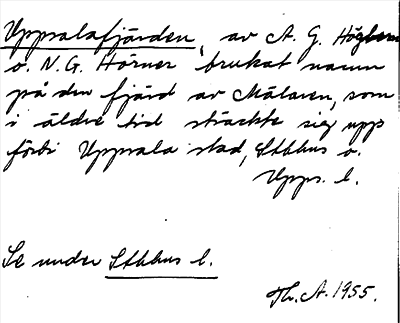 Uppsalafjärden, av A. G. Högbom
o. N. G. Hörner brukat namn
på den fjärd av Mälaren, som
i äldre tid sträckte sig upp
förbi Uppsala stad, Sthlms o.
Upps. l.
Se under Sthlms l.
Th. A. 1955.